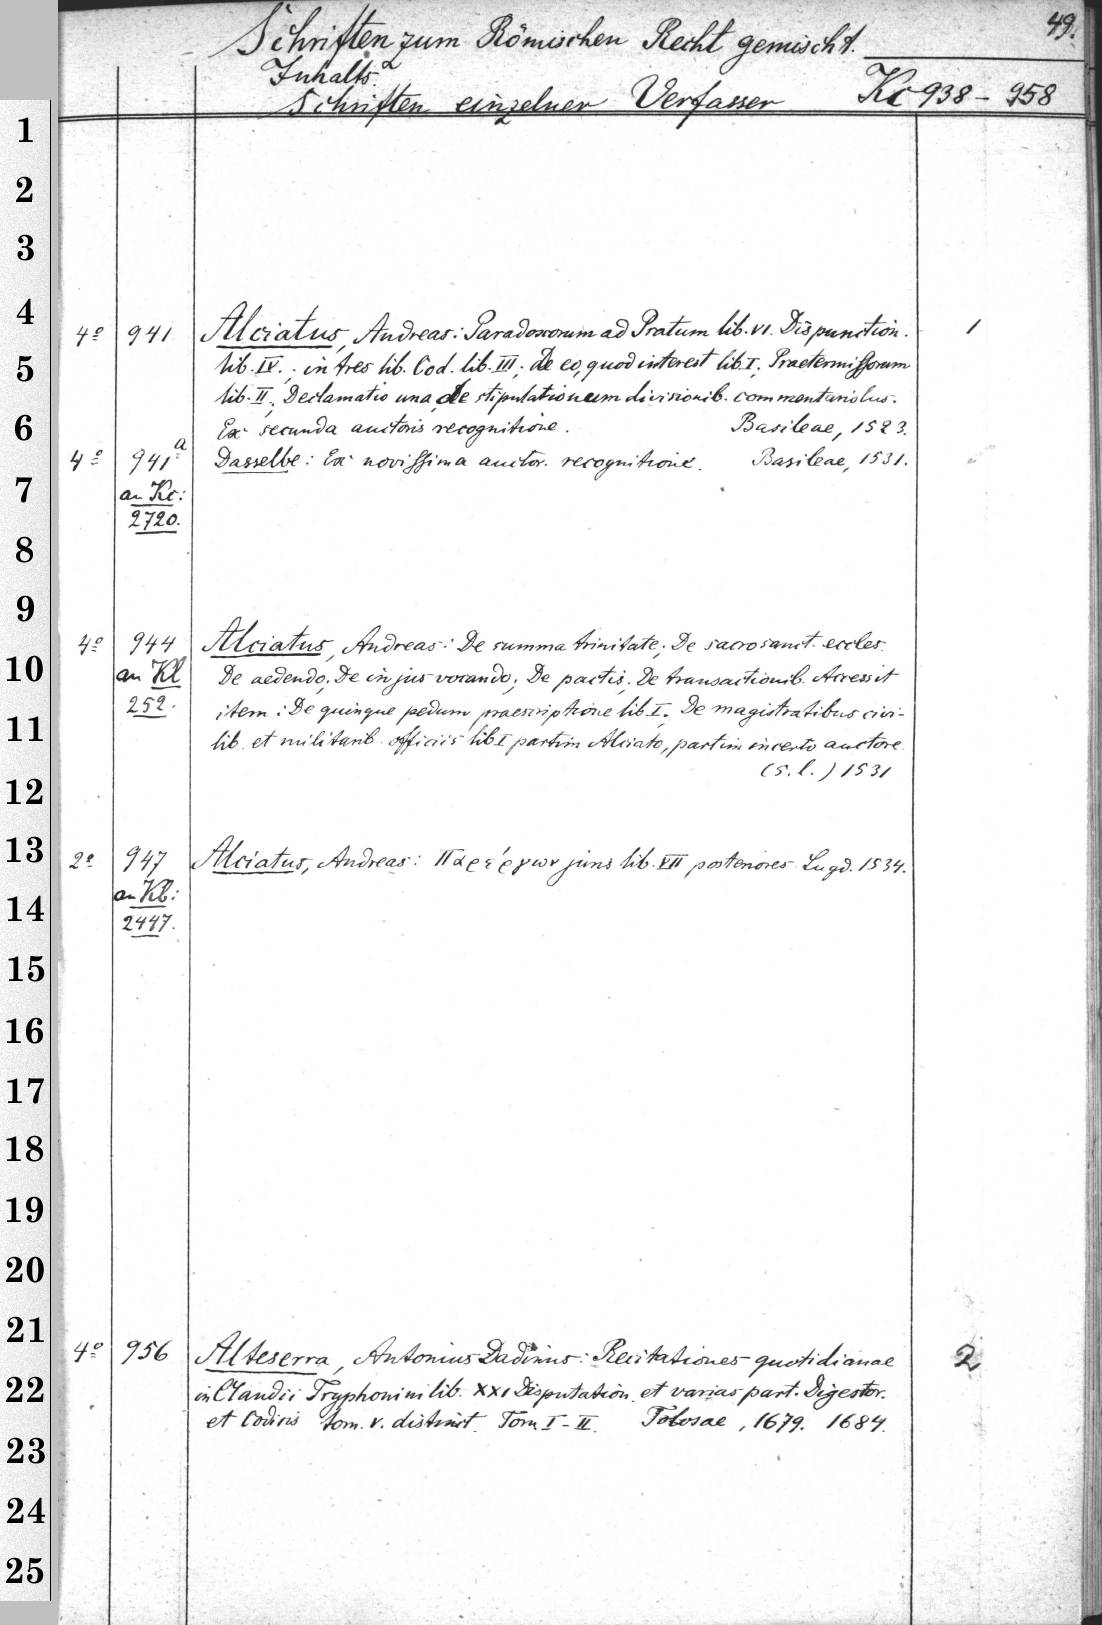 49.
Schriften zum Römischen Recht gemischt.
Inhalts.
Schriften einzelner Verfasser Kc 938 - 958
1
2
3
4
4º 941 Alciatus, Andreas: Paradoxorum ad Pratum lib. VI. Dispunction. 1
5
lib. IV.; in tres lib. Cod. lib. III; De eo, quod interest lib. I; Praetermissorum
lib. II; Declamatio una, de stipulationum divisionib. commentariolus.
6
Ex secunda auctoris recognitione. Basileae, 1523.
4º 941a Dasselbe: Ex novissima auctor. recognitione. Basileae, 1531.
7
an Kc:
2720.
8
9
4º 944 Alciatus, Andreas: De summa trinitate; De sacrosanct. eccles.
10
an Kl De aedendo; De in jus vocando; De pactis; De transactionib. Accessit
252. item: De quinque pedum praescriptione lib. I; De magistratibus civi-
11
lib. et militarib. officiis lib I partim Alciato, partim incerto auctore.
(s. l.) 1531
12
13
2º 947 Alciatus, Andreas: Παρέργων juris lib. VII posteriores. Lugd. 1534.
an Kb:
14
2447.
15
16
17
18
19
20
21
4º 956 Alteserra, Antonius Dadinus: Recitationes quotidianae 2
22
in Claudii Tryphonini lib. XXI Disputation. et varias part. Digestor.
et Codicis tom. V. distinct. Tom. I - II. Tolosae, 1679. 1684.
23
24
25